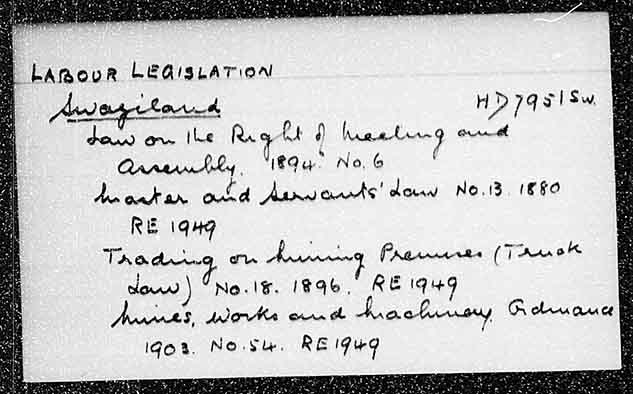 LABOUR LEGISLATION
Swaziland HD7951Sw.
Law on the Right of Meeting and
Assembly. 1894. No. 6
Master and Servants' Law No. 13. 1880
RE 1949
Trading on Mining Premises (Truck
Law) No. 18. 1896. RE 1949
Mines, Works and Machinery Ordinance
1903. No. 54. RE 1949